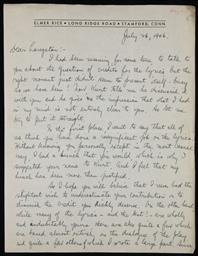 ELMER RICE • LONG RIDGE ROAD • STAMFORD, CONN.
July 26, 1946.
Dear Langston:-
I had been meaning for some time to talk to
you about the question of credits for the lyrics but the
right moment just didn't seem to present itself; being
so far from here! Now Kurt tells me he discussed it
with you and he gives me the impression that what I had
in my mind is not entirely clear to you. So let me
try to put it straight.
In the first place, I want to say that all of
us think you have done a magnificent job on the lyrics.
Without knowing you personally except in the most casual
way, I had a hunch that you would which is why I
suggested your name to Kurt. And I feel that my
hunch has been more than justified.
So I hope you will believe that I never had the
slightest wish to underestimate your contribution or to
diminish the credit you richly deserve. On the other hand
while many of the lyrics - and the best! - are wholly
and indubitably yours there are also quite a few which
are based almost entirely on the dialogue of the play
and quite a few others of which I wrote a large part. Since